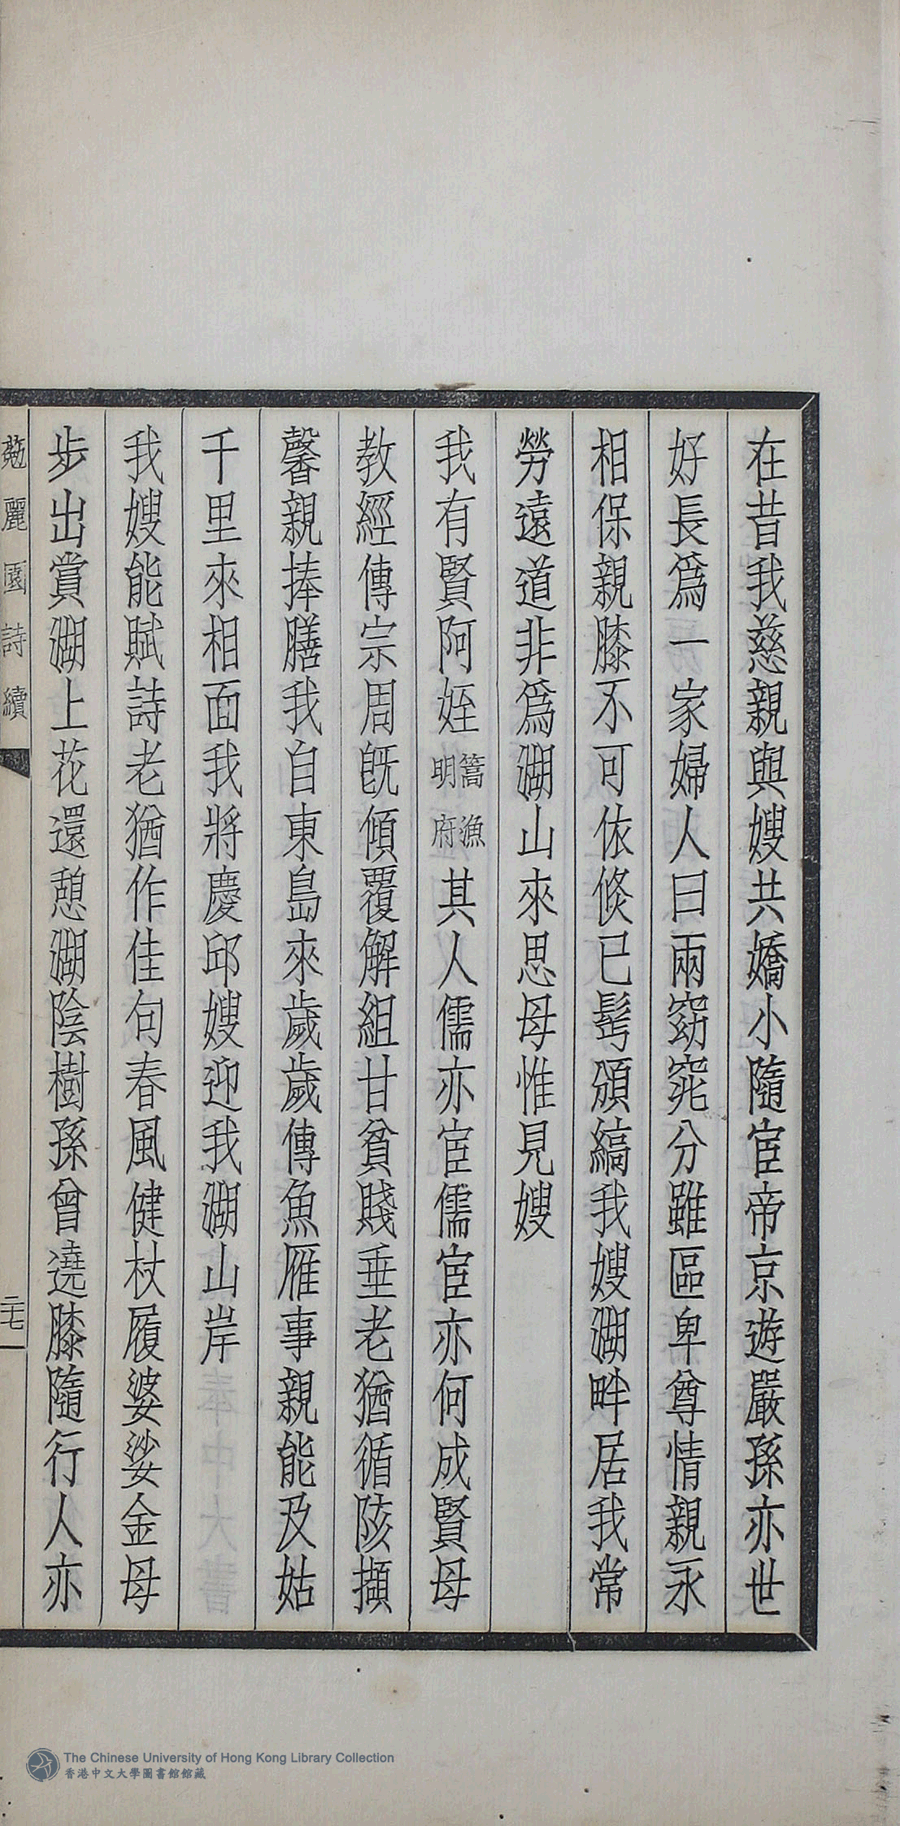 在昔我慈親與嫂共嬌小隨宦帝京遊嚴孫亦世
好長爲一家婦人曰兩窈窕分雖區卑尊情親永
相保親膝不可依倐已髩頒縞我嫂湖畔居我常
勞遠道非爲湖山來思母惟見嫂
我有賢阿姪篙漁明府其人儒亦宦儒宦亦何成賢母
教經傳宗周旣傾覆解組甘貧賤垂老猶循陔擷
馨親捧膳我自東島來歲歲傳魚雁事親能及姑
千里來相面我將慶邱嫂迎我湖山岸
我嫂能賦詩老猶作佳句春風健杖履婆娑金母
步出賞湖上花還憩湖陰樹孫曾遶膝隨行人亦
麗園詩續
二七
The Chinese University of Hong Kong Library Collection
香港中文大學圖書館館藏